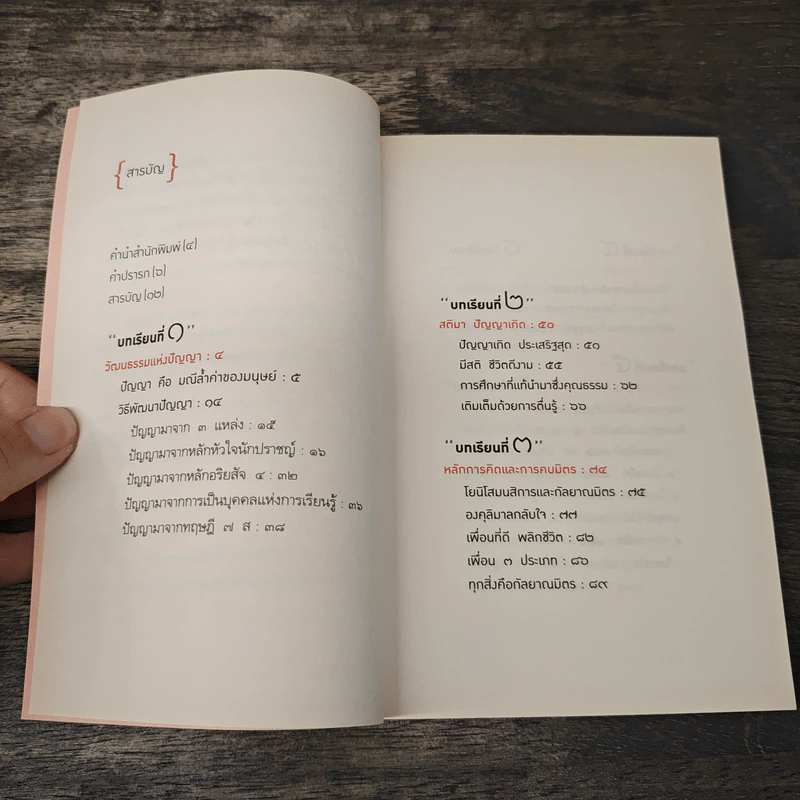 { สารบัญ }
คำนำสำนักพิมพ์ (๔)
คำปรารภ (๖)
สารบัญ (๑๒)
“บทเรียนที่ ๑”
วัฒนธรรมแห่งปัญญา : ๔
ปัญญา คือ มณีล้ำค่าของมนุษย์ : ๕
วิธีพัฒนาปัญญา : ๑๔
ปัญญามาจาก ๓ แหล่ง : ๑๕
ปัญญามาจากหลักหัวใจนักปราชญ์ : ๑๖
ปัญญามาจากหลักอริยสัจ ๔ : ๓๒
ปัญญามาจากการเป็นบุคคลแห่งการเรียนรู้ : ๓๖
ปัญญามาจากทฤษฎี ๗ ส : ๓๘
“บทเรียนที่ ๒”
สติมา ปัญญาเกิด : ๕๐
ปัญญาเกิด ประเสริฐสุด : ๕๑
มีสติ ชีวิตดีงาม : ๕๕
การศึกษาที่แท้นำมาซึ่งคุณธรรม : ๖๒
เติมเต็มด้วยการตื่นรู้ : ๖๖
“บทเรียนที่ ๓”
หลักการคิดและการคบมิตร : ๗๔
โยนิโสมนสิการและกัลยาณมิตร : ๗๕
องคุลิมาลกลับใจ : ๗๗
เพื่อนที่ดี พลิกชีวิต : ๘๒
เพื่อน ๓ ประเภท : ๘๖
ทุกสิ่งคือกัลยาณมิตร : ๘๙